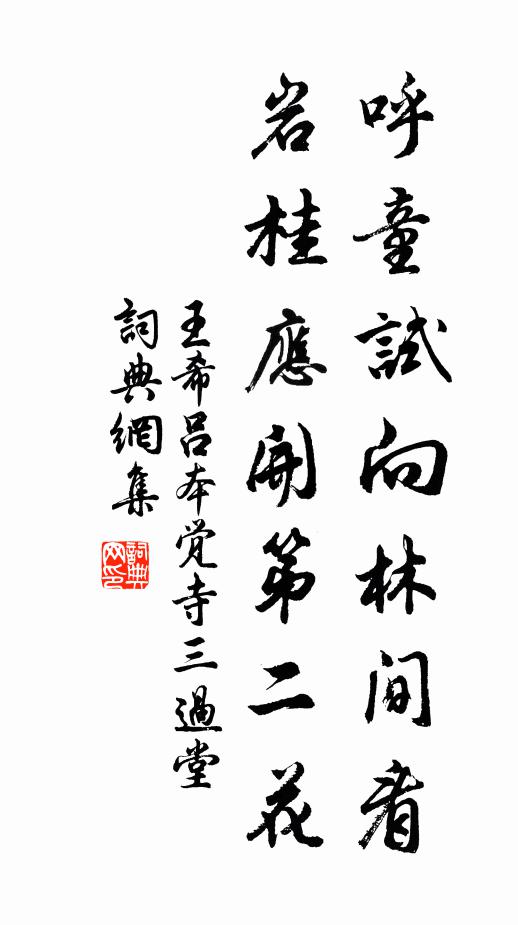 呼童試向林間看
岩桂應開第二花
王希呂本覚寺三過堂
詞典網集
詞典网印